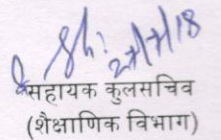 27/7/18
सहायक कुलसचिव
(शैक्षाणिक विभाग)